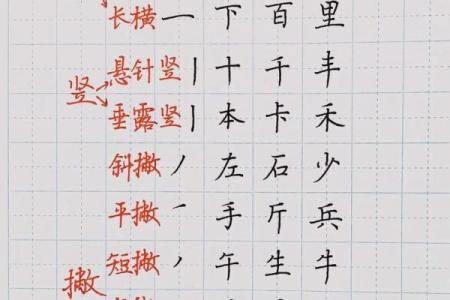 长横 一 下 百 里
悬针竖 丨 十 千 丰
竖
垂露竖 丨 本 卡 禾
斜撇 丿 左 石 少
平撇 ㇒ 手 斤 兵
短撇 ㇒ 午 生 牛
撇